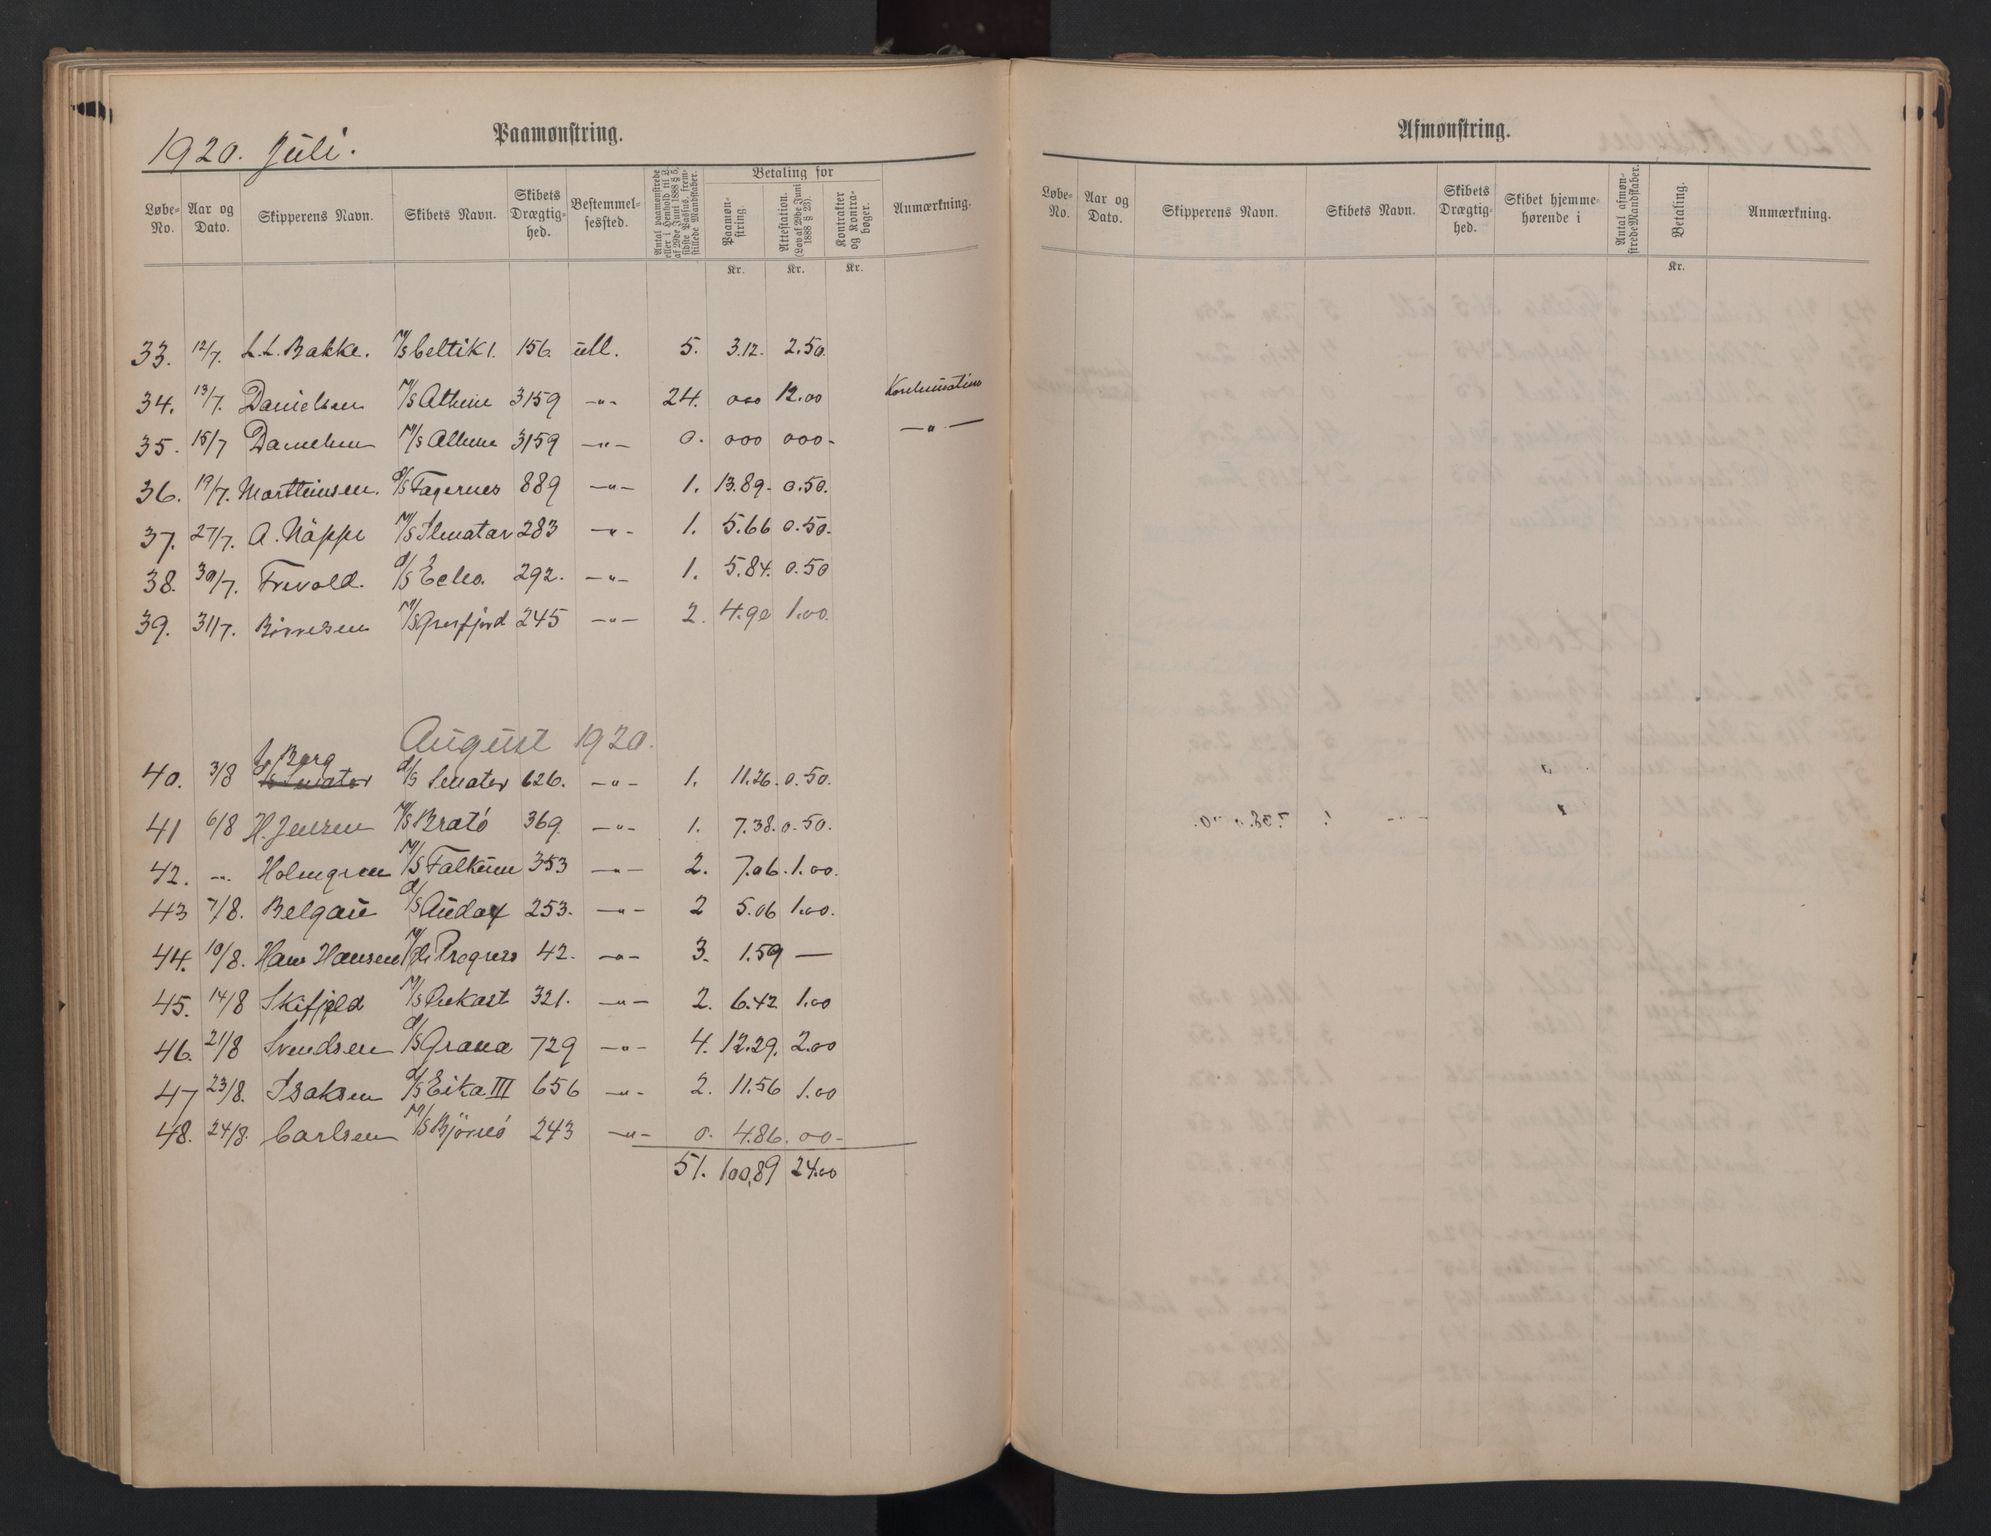 1920. Juli.
Paamønstring.
Løbe-No. Aar og Dato. Skipperens Navn. Skibets Navn. Skibets Drægtighed. Bestemmelsessted. Antal paamønstrede eller i Henhold til L. af 29de Juni 1888 § 5, sidste Passus, fremstillede Mandskaber. Betaling for Paamønstring. Attestation. (Lov af 29de Juni 1888 § 23). Kontrakter og Kontrabøger. Anmærkning.
Kr. Kr. Kr.
33. 12/7. L.L. Bakke. M/S Celtik 1. 156. utl. 5. 3.12. 2.50.
34. 13/7. Danielsen M/S Athene 3159 -"- 24. 000 12.00
35. 15/7 Danielsen M/S Athene 3159 -"- 0. 000 000- -"-
36. 19/7. Marthinsen. d/S Fagernes 889 -"- 1. 13.89. 0.50.
37. 27/7. A. Näppe M/S Ilmatar 283 -"- 1. 5.66 0.50.
38. 30/7. Frivold. d/S Echo. 292. -"- 1. 5.84. 0.50
39. 31/7. Børresen M/S 245 -"- 2. 4.90 1.00.
August 1920.
40. 3/8 Borg d/S Senator 626. -"- 1. 11.26. 0.50.
41 6/8 H. Jensen M/S Bratö 369 -"- 1. 7.38. 0.50.
42. -"- Holmgren M/S Falkum 353 -"- 2. 7.06. 1.00.
43 7/8. Belgau d/S Audax 253. -"- 2 5.06 1.00.
44. 10/8. Hans Hansen Progress 42. -"- 3. 1.59 —
45. 14/8 Skifjeld M/S 321. -"- 2. 6.42 1.00
46. 21/8 Svendsen d/S Grana 729 -"- 4. 12.29. 2.00
47 23/8. Isaksen d/S Eika III 656 -"- 2. 11.56 1.00
48. 24/8. Carlsen M/S Björnö 243 -"- 0. 4.86. 00-
51. 100,89 24.00
Afmønstring.
Løbe-No. Aar og Dato. Skipperens Navn. Skibets Navn. Skibets Drægtighed. Skibet hjemmehørende i Antal afmønstrede Mandskaber. Betaling. Anmærkning.
Kr.